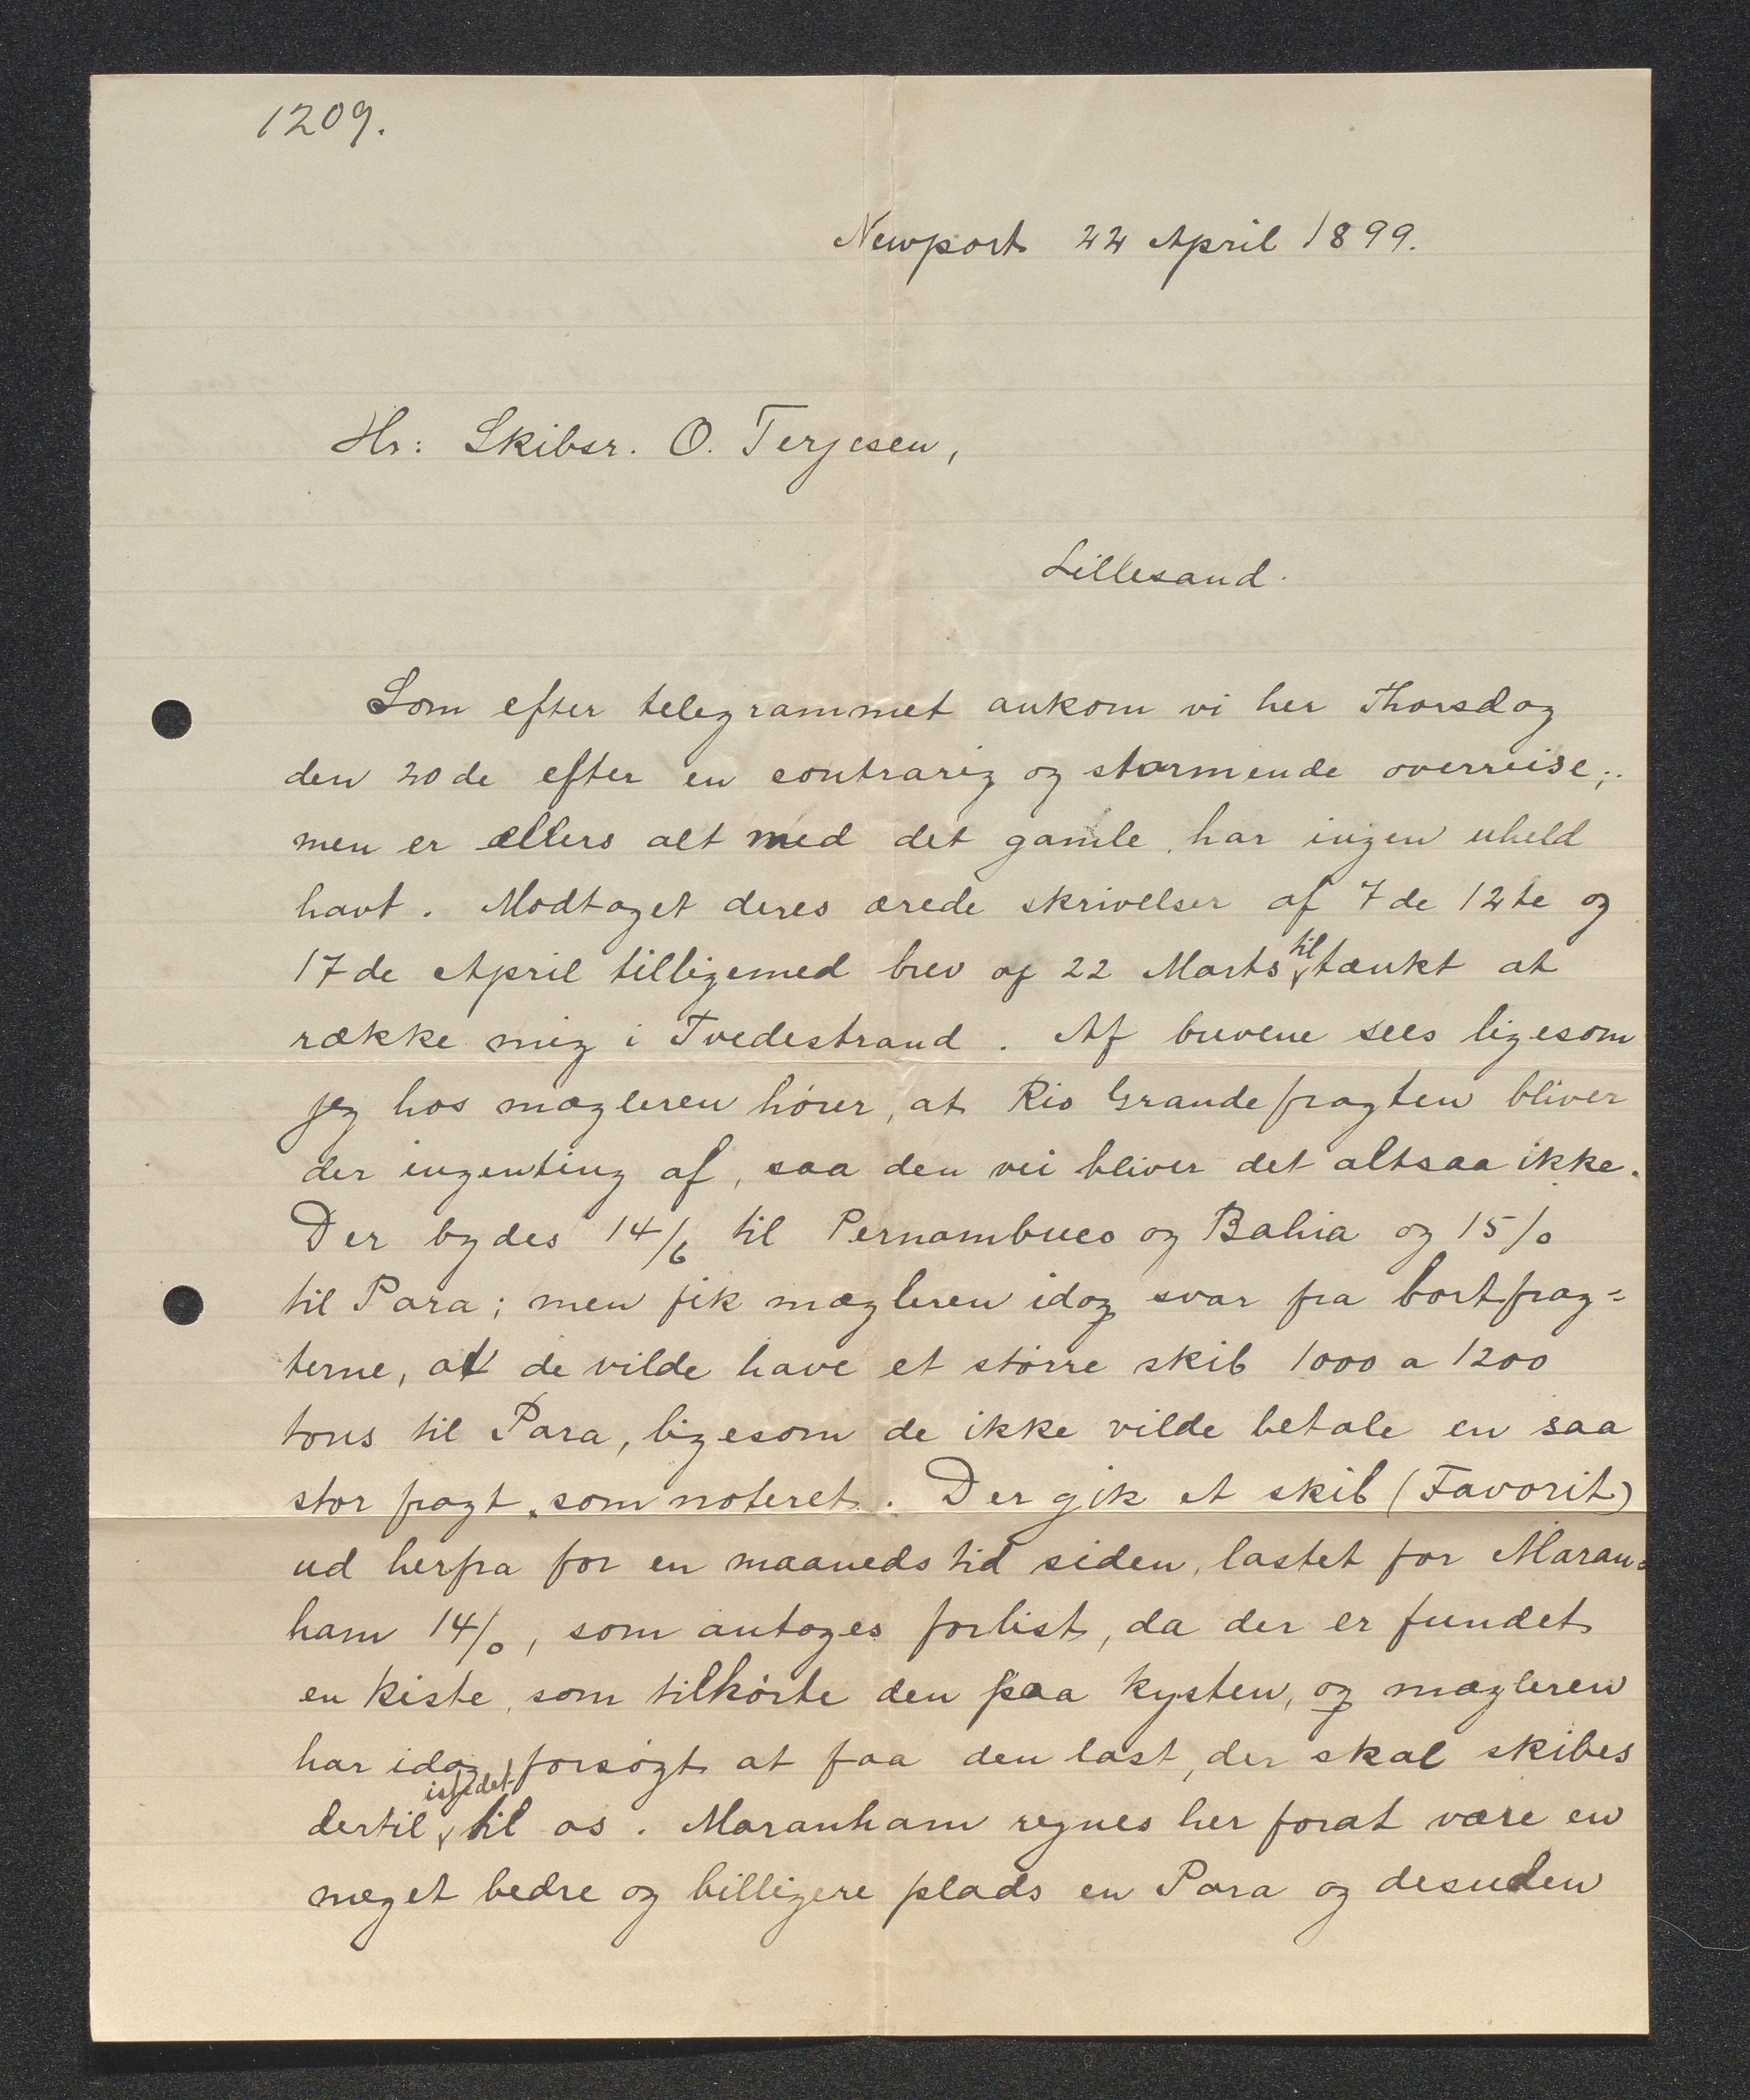 1209.
Newport 22 April 1899.
Hr: Skibsr. O. Terjesen,
Lillesand.
Som efter telegrammet ankom vi her Thorsdag
den 20de efter en contrarig og stormende overreise;
men er ellers alt med det gamle, har ingen uheld
havt. Modtaget deres ærede skrivelser af 7de 12te og
17de April tilligemed brev af 22 Marts tiltænkt at
række mig i Tvedestrand. Af brevene sees ligesom
jeg hos mægleren hører, at Rio Grande fragten bliver
der ingenting af, saa den vei bliver det altsaa ikke.
Der bydes 14/6 til Pernambuco og Bahia og 15/0
til Para; men fik mægleren idag svar fra bortfrag=
terne, at de vilde have et større skib 1000 a 1200
tons til Para, ligesom de ikke vilde betale en saa
stor fragt, som noteret. Der gik et skib (Favorit)
ud herfra for en maaneds tid siden, lastet for Maran=
ham 14/0, som antages forlist, da der er fundet
en kiste, som tilhørte den paa kysten, og mægleren
har idag forsøgt at faa den last, der skal skibes
dertil istedet til os. Maranham regnes her forat være en
meget bedre og billigere plads en Para og desuden